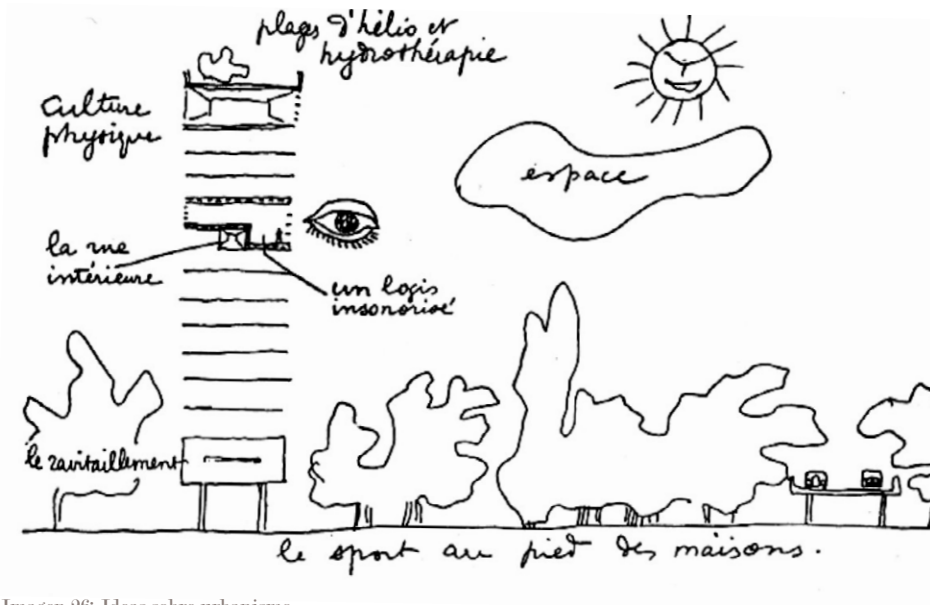 plages d'hélio et
hydrothérapie
culture
physique
espace
la rue
intérieure
un logis
insonorisé
le ravitaillement
le sport au pied des maisons.
Imagen 26: Ideas sobre urbanismo